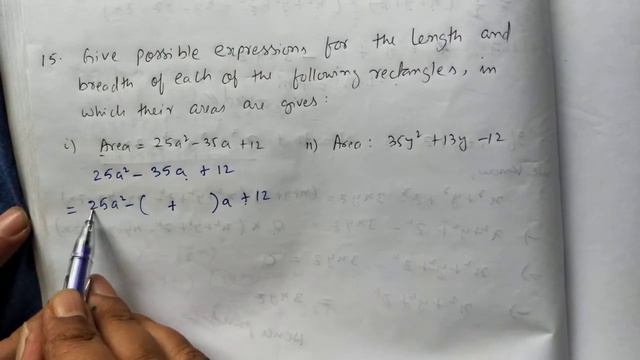 15. Give possible expressions for the length and
breadth of each of the following rectangles, in
which their areas are gives:
i) Area = 25a² - 35a + 12 ii) Area: 35y² + 13y - 12
25a² - 35a + 12
= 25a² - ( + )a + 12